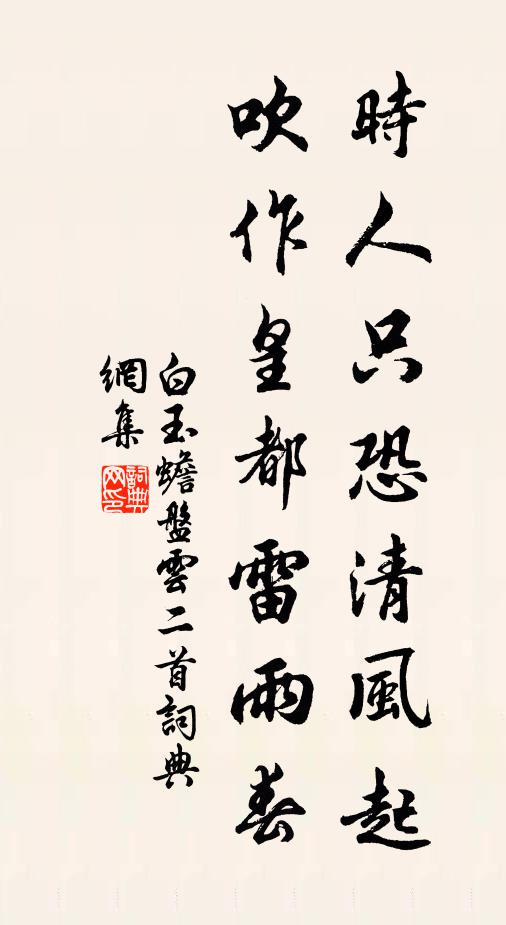 時人只恐清風起
吹作皇都雷雨春
白玉蟾盤雲二首詞典
網集
詞典
网印